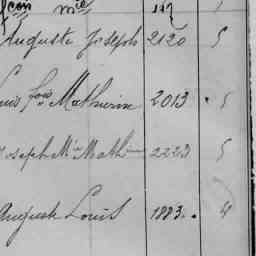 Auguste Joseph 2120 5
Louis fois Mathurin 2013 5
Joseph Mie Math 2223 5
Auguste Louis 1883 4